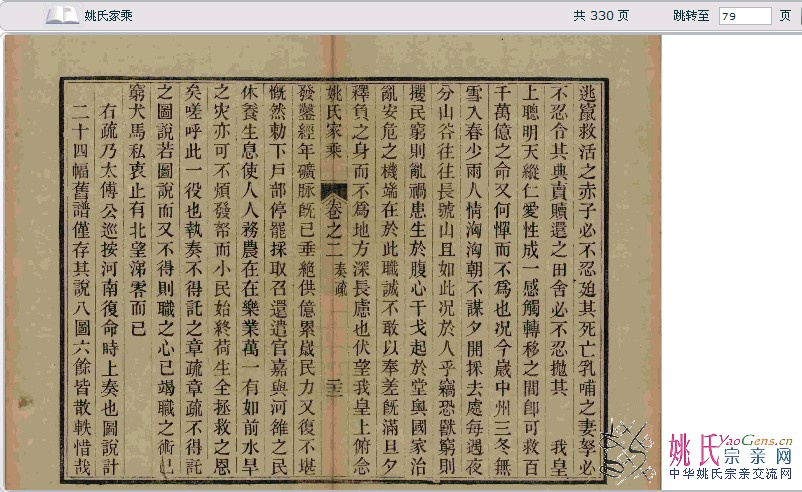 姚氏家乘
共 330 页
跳转至 79 页
逃竄救活之赤子必不忍迫其死亡乳哺之妻孥必
不忍令其典賣贖還之田舍必不忍拋其　我皇
上聰明天縱仁愛性成一感觸轉移之間卽可救百
千萬億之命又何憚而不為也况今歲中州三冬無
雪入春少雨人情洶洶朝不謀夕開採去處每遇夜
分山谷往往長號山且如此况於人乎竊恐獸窮則
攫民窮則亂禍患生於腹心干戈起於堂輿國家治
亂安危之機端在於此職誠不敢以奉差既滿旦夕
釋負之身而不為地方深長慮也伏望我皇上俯念
姚氏家乘　卷之二　奏疏　二十三
發鑿經年礦脉既已垂絶供億累歲民力又復不堪
慨然勅下戶部停罷採取召還遣官嘉與河雒之民
休養生息使人人務農在在樂業萬一有如前水旱
之灾亦可不煩發帑而小民始終荷生全拯救之恩
矣嗟呼此一役也執奏不得託之章疏章疏不得託
之圖說若圖說而又不得則職之心已竭職之術已
窮犬馬私衷止有北望涕零而已
右疏乃太傅公巡按河南復命時上奏也圖說計
二十四幅舊譜僅存其說八圖六餘皆散軼惜哉
姚氏 YaoGens.cn
宗亲网
中华姚氏宗亲交流网